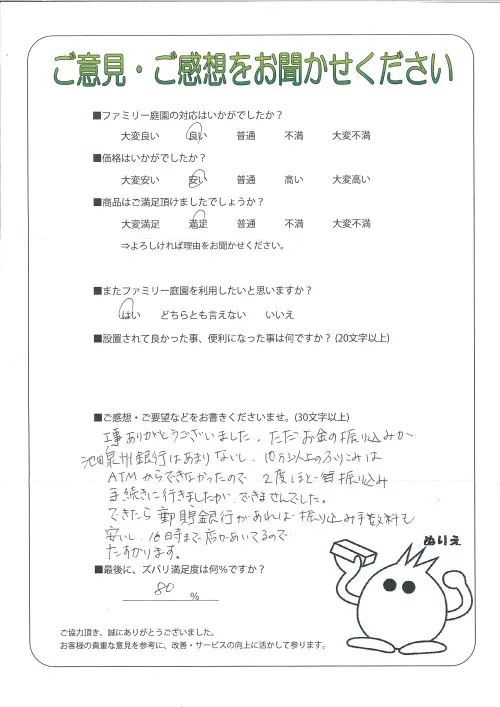 ご意見・ご感想をお聞かせください
■ファミリー庭園の対応はいかがでしたか？
大変良い 良い 普通 不満 大変不満
■価格はいかがでしたか？
大変安い 安い 普通 高い 大変高い
■商品はご満足頂けましたでしょうか？
大変満足 満足 普通 不満 大変不満
⇒よろしければ理由をお聞かせください。
■またファミリー庭園を利用したいと思いますか？
はい どちらとも言えない いいえ
■設置されて良かった事、便利になった事は何ですか？(20文字以上)
■ご感想・ご要望などをお書きくださいませ。(30文字以上)
工事ありがとうございました。ただお金の振り込みが
池田泉州銀行はあまりないし、10万以上のふりこみは
ATMからできなかったので 2度ほど 振り込み
手続きに行きましたが、できませんでした。
できたら 郵貯銀行があれば 振り込み手数料も
安いし、16時まで店があいてるので
たすかります。
ぬりえ
■最後に、ズバリ満足度は何％ですか？
80 ％
ご協力頂き、誠にありがとうございました。
お客様の貴重な意見を参考に、改善・サービスの向上に活かして参ります。